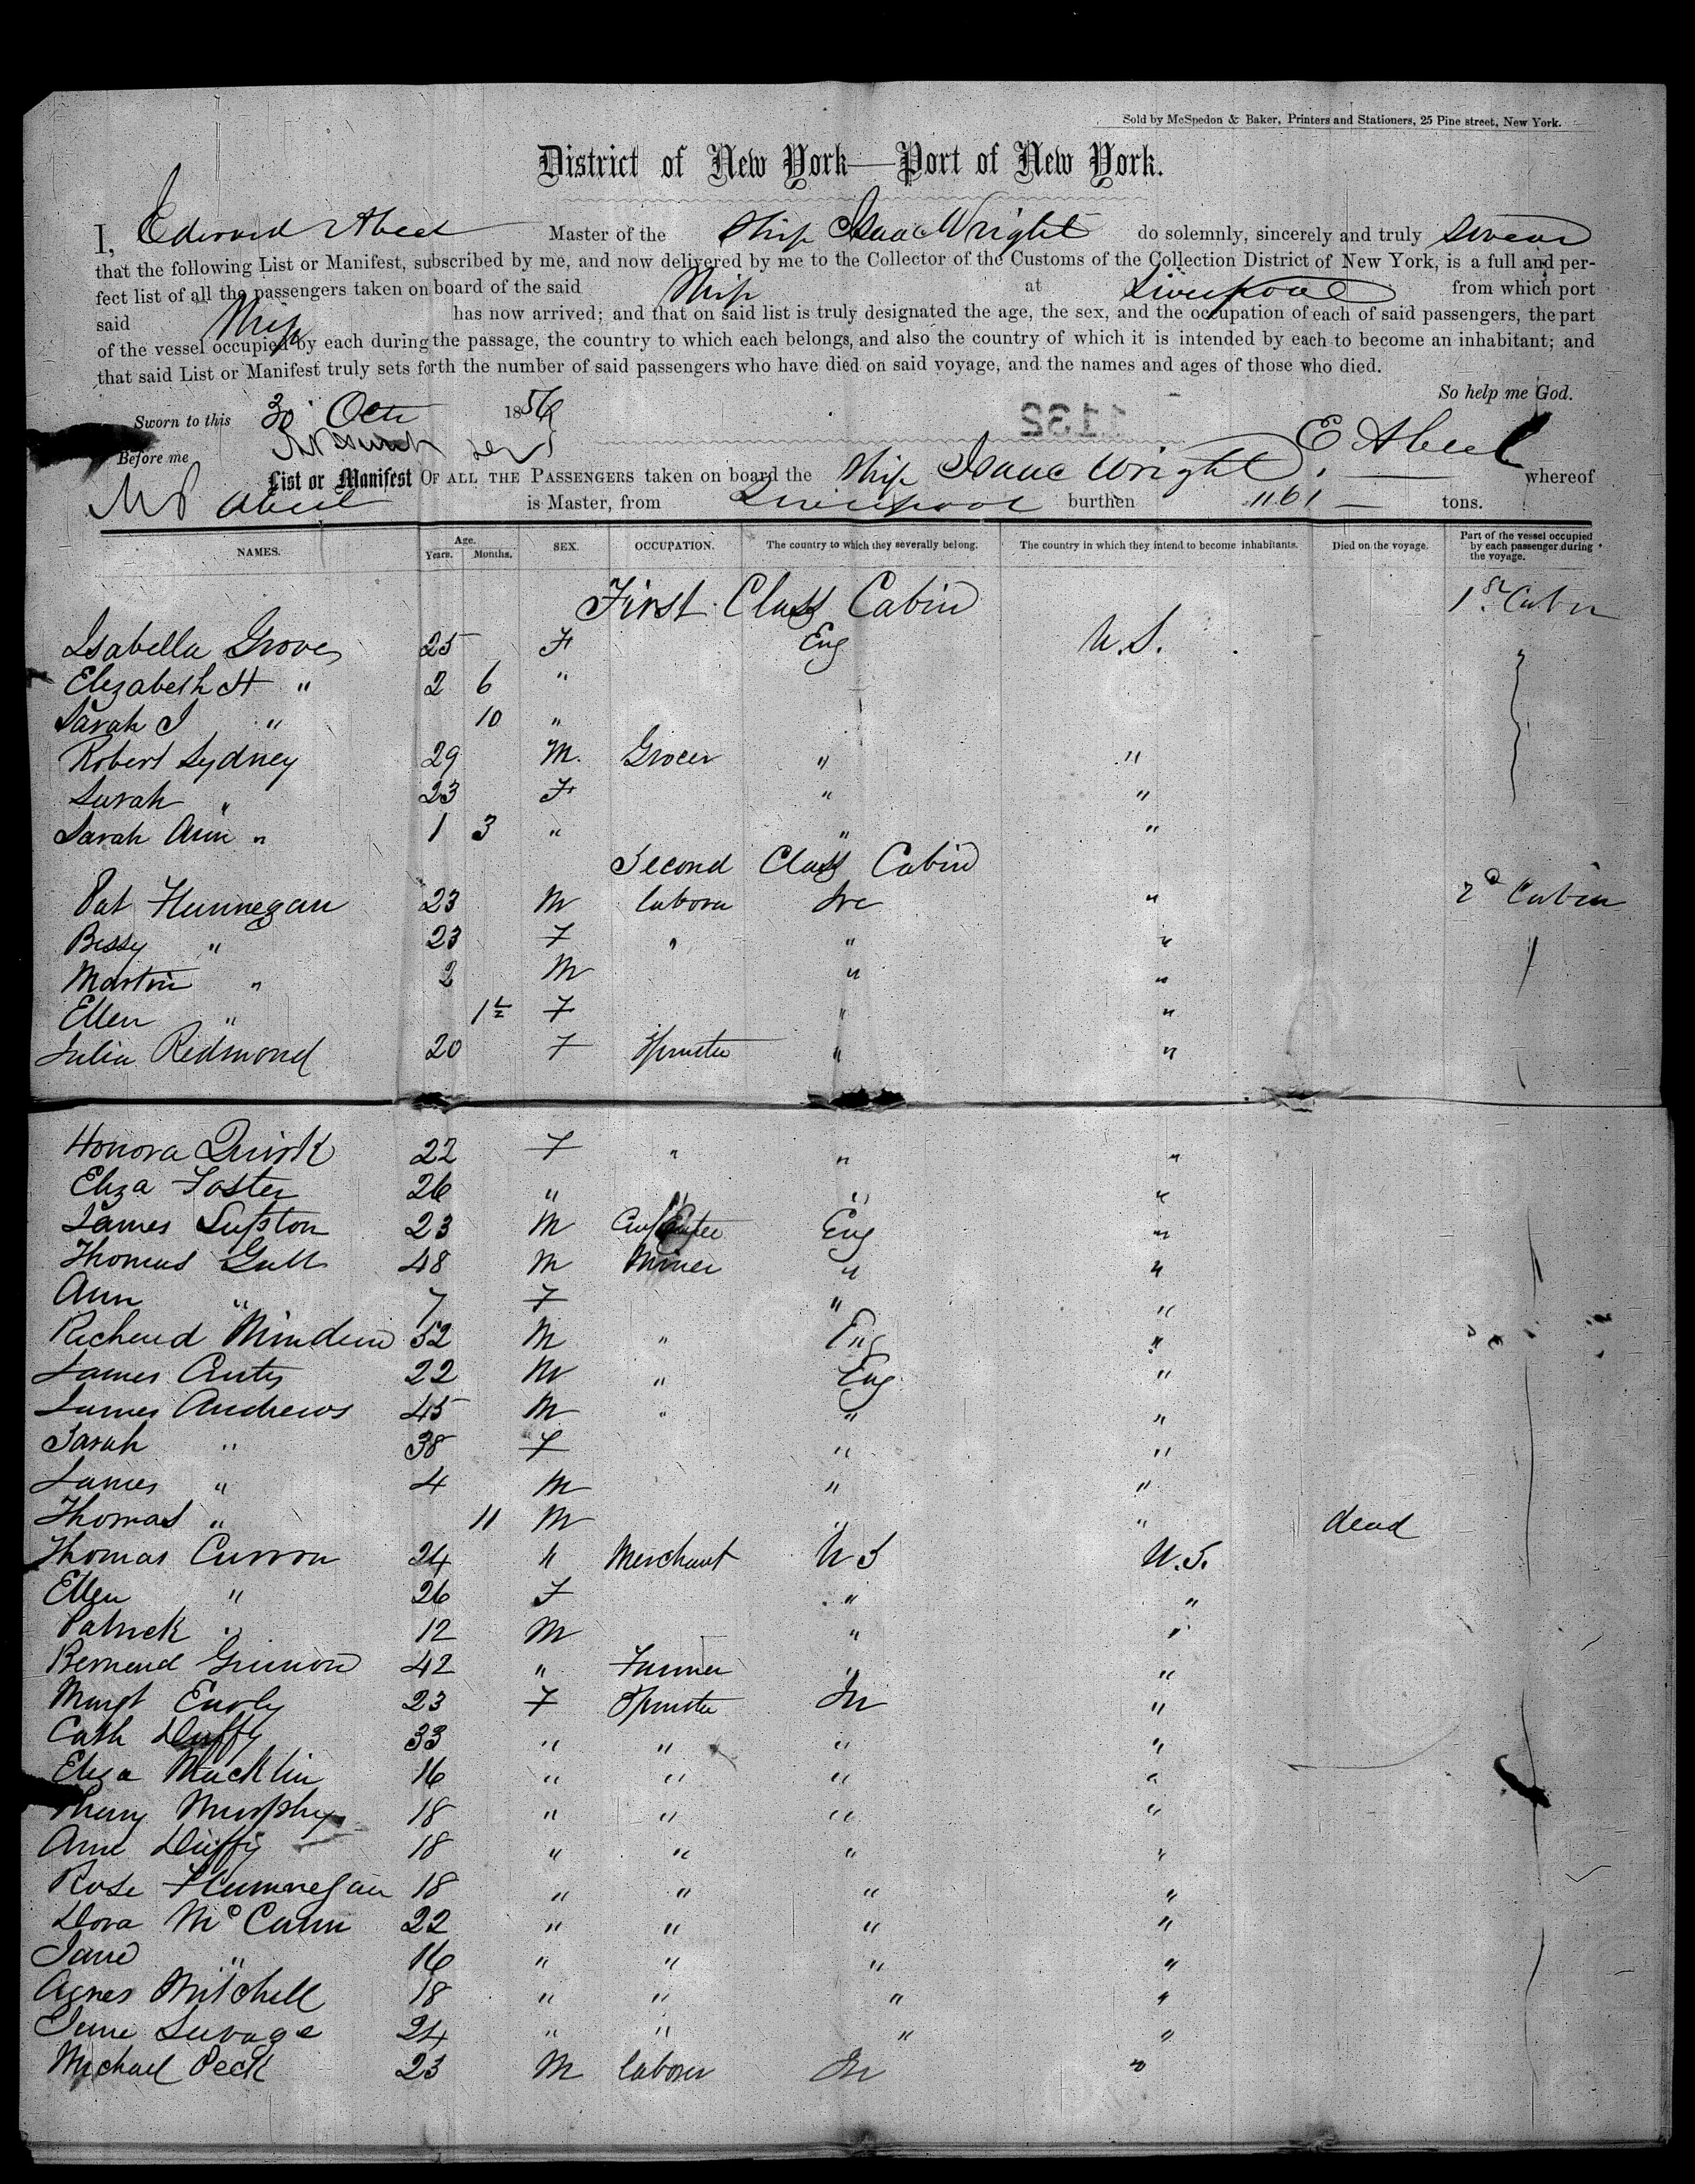 Sold by McSpedon & Baker, Printers and Stationers, 25 Pine street, New York.
District of New York—Port of New York.
I, Edward Abeel Master of the Ship Isaac Wright do solemnly, sincerely and truly swear
that the following List or Manifest, subscribed by me, and now delivered by me to the Collector of the Customs of the Collection District of New York, is a full and per-
fect list of all the passengers taken on board of the said Ship at Liverpool from which port
said Ship has now arrived; and that on said list is truly designated the age, the sex, and the occupation of each of said passengers, the part
of the vessel occupied by each during the passage, the country to which each belongs, and also the country of which it is intended by each to become an inhabitant; and
that said List or Manifest truly sets forth the number of said passengers who have died on said voyage, and the names and ages of those who died.
So help me God.
Sworn to this 30 Octr 1856
1132
E Abeel
Before me
List or Manifest OF ALL THE PASSENGERS taken on board the Ship Isaac Wright whereof
Abeel is Master, from Liverpool burthen 1161 — tons.
NAMES. Age. Years. Months. SEX. OCCUPATION. The country to which they severally belong. The country in which they intend to become inhabitants. Died on the voyage. Part of the vessel occupied by each passenger during the voyage.
First Class Cabin 1st Cabin
Isabella Groves 25 F Eng U.S.
Elizabeth H " 2 6 "
Sarah J " 10 "
Robert Sydney 29 M. Grocer " "
Sarah " 23 F " "
Sarah Ann " 1 3 " " "
Second Class Cabin
Pat Flunnegan 23 M labora Ire " 2d Cabin
Bessy " 23 F " " "
Martin " 2 M " "
Ellen " 1½ F " "
Julia Redmond 20 F Spinster " "
Honora Quirk 22 F " " "
Eliza Foster 26 " " " "
James Lupton 23 M Carpenter Eng "
Thomas Gull 48 M Miner " "
Ann " 7 F " "
Richard 52 M " Eng "
James 22 M " Eng "
James Andrews 45 M " " "
Sarah " 38 F " "
James " 4 M " "
Thomas " 11 M " " dead
Thomas Curron 24 " Merchant U S U.S.
Ellen " 26 F " "
Patrick " 12 M " "
Bernard 42 " Farmer " "
Margt Early 23 F Spinster Ir "
Cath Duffy 33 " " " "
Eliza Macklin 16 " " " "
Murphy 18 " " " "
Ann Duffy 18 " " " "
Rose Flunnegan 18 " " " "
Dora McCann 22 " " " "
Jane " 16 " " " "
Agnes Mitchell 18 " " " "
Jane Savage 24 " " " "
Michael Peck 23 M laborer Ir "